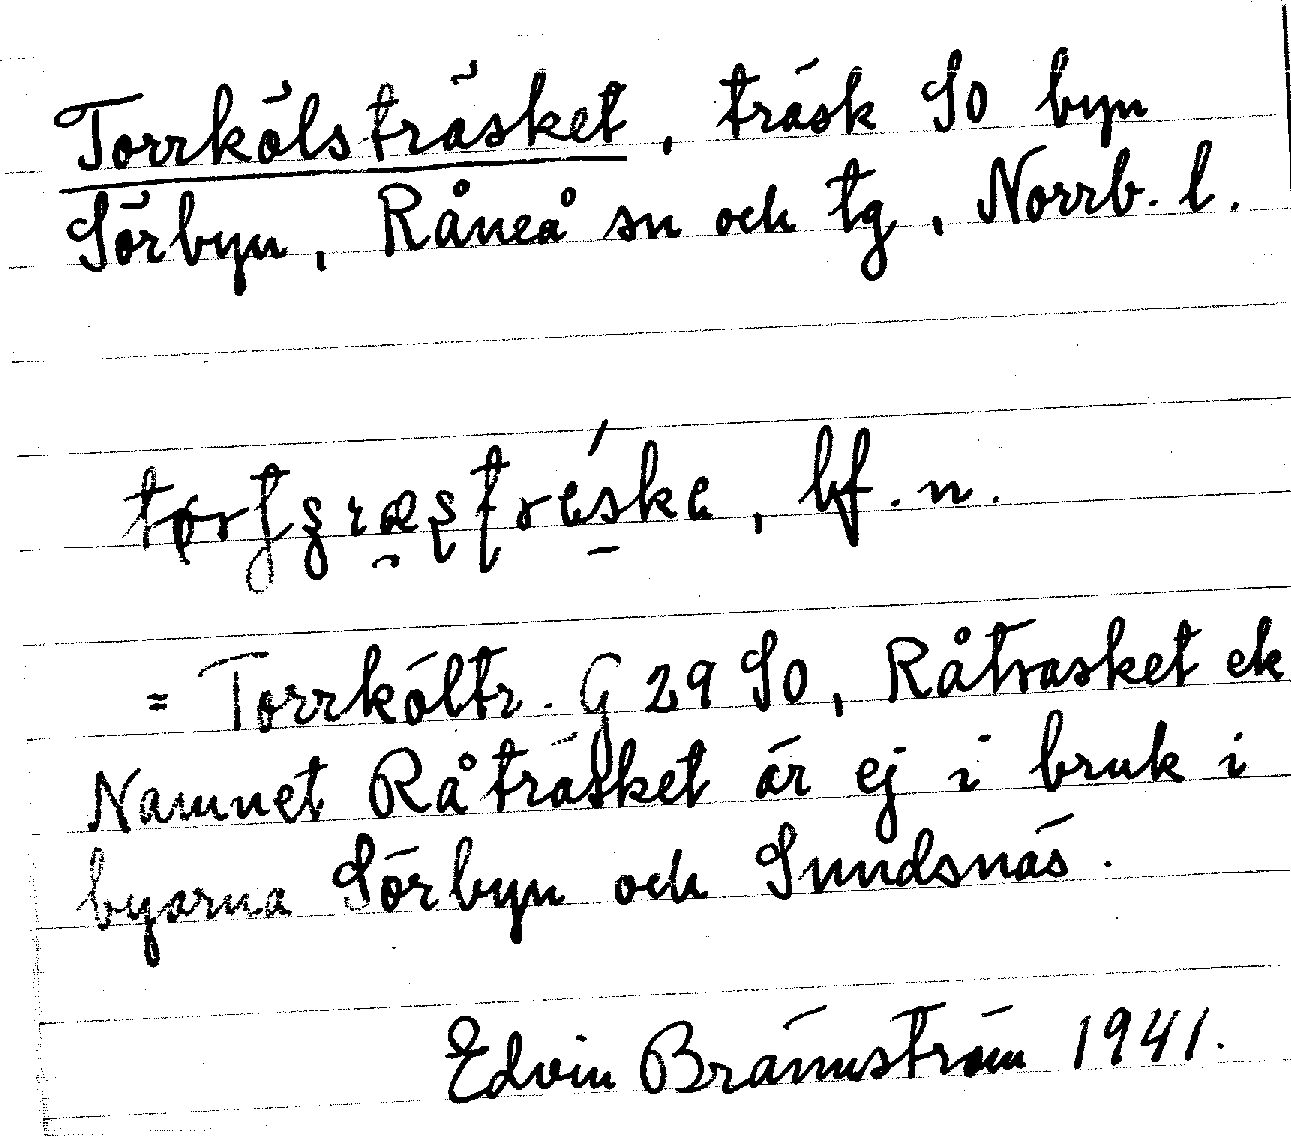 Torrkölsträsket, träsk SO byn
Sörbyn, Råneå sn och tg, Norrb. l.
, bf. n.
= Torrköltr. G 29 SO, Råträsket ek
Namnet Råträsket är ej i bruk i
byarna Sörbyn och Sundsnäs.
Edvin Brännström 1941.